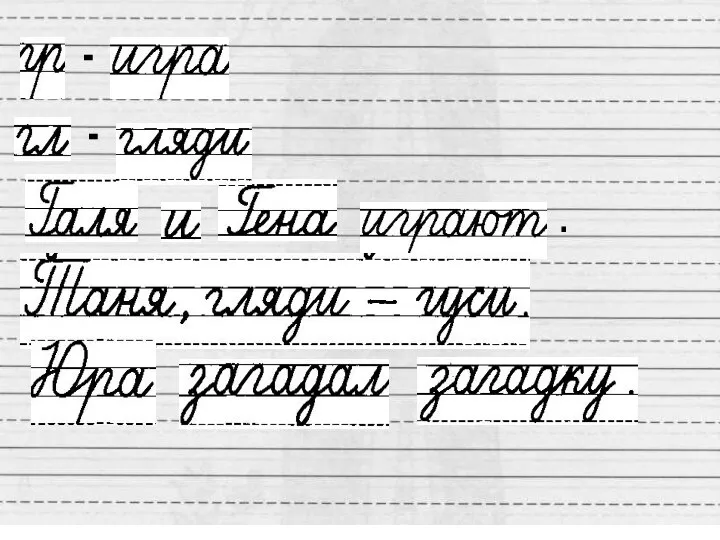 гр - игра
гл - гляди
Галя и Гена играют.
Таня, гляди – гуси.
Юра загадал загадку.